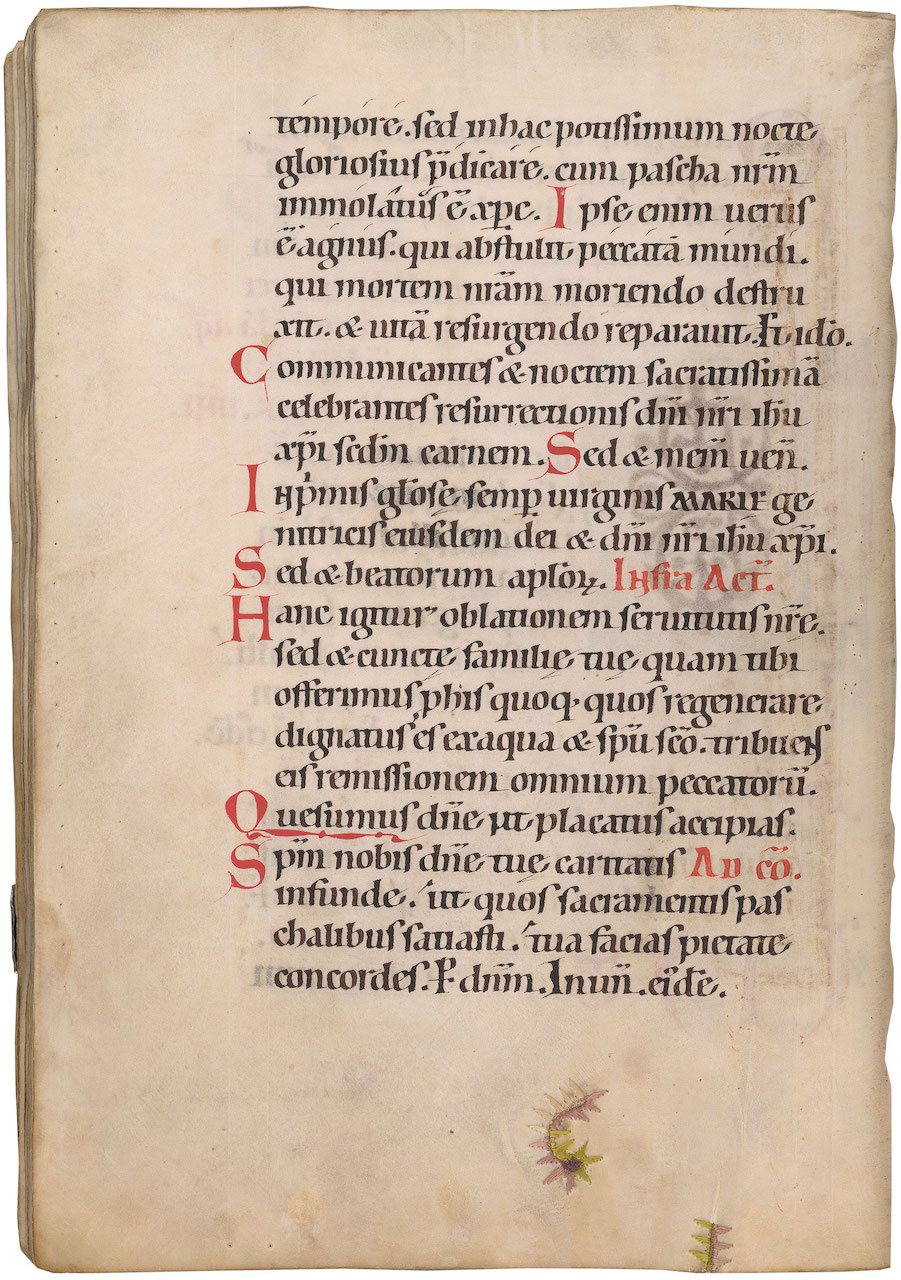 tempore. sed in hac potissimum nocte
gloriosius p̄dicare. cum pascha nr̄m
immolatus ē xp̄c. Ipse enim uerus
ē agnus. qui abstulit peccata mundi.
qui mortem nr̄am moriendo destru
xit. & uitā resurgendo reparauit. Et ido̅.
Communicantes & noctem sacratissimā
celebrantes resurrectionis dn̄i nr̄i ih̄u
xp̄i sedm carnem. Sed & mem̄ uen̄.
Inp̄mis glo̅sę semp̱ uirginis MARIE ge
nitricis eiusdem dei & dn̄i nr̄i ih̄u xp̄i.
Sed & beatorum aplo̅ꝝ. Infra Act̄.
Hanc igitur oblationem seruitutis nr̄ę.
sed & cunctę familię tuę quam tibi
offerimus p his quoq; quos regenerare
dignatus es ex aqua & sp̄u sc̄o. tribuens
eis remissionem omnium peccatorū.
Quesumus dn̄e ut placatus accipias.
Spm̄ nobis dn̄e tuę caritatis AD cō.
infunde. ut quos sacramentis pas
chalibus satiasti. tua facias pietate
concordes. P̱ dn̄m. In un̄. eiu̅sde.